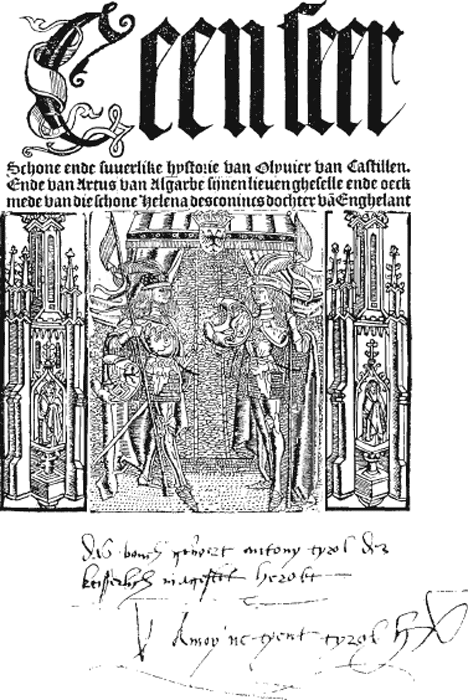 Een ſeer
Schone ende ſuuerlike hyſtorie van Olyuier van Caſtillen.
Ende van Artus van Algarbe ſijnen lieuen gheſelle ende oeck
mede van die ſchone Helena desconincs dochter vā Enghelant
das bouch antony tyrol der
keisserlich magestet herolt
tyrol